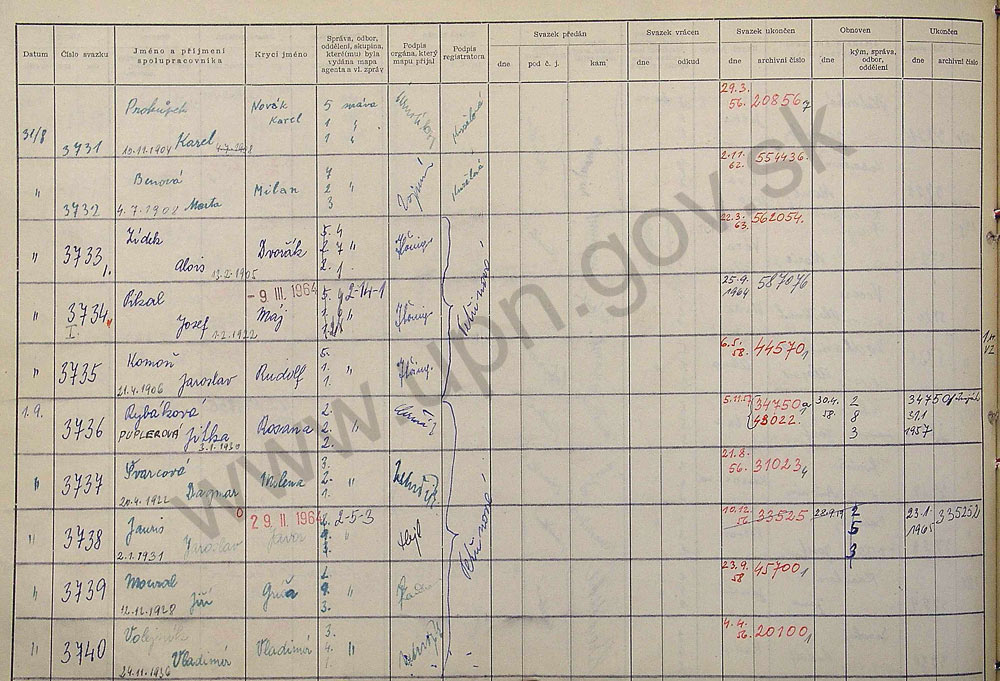 Datum
Číslo svazku
Jméno a příjmení
spolupracovníka
Krycí jméno
Správa, odbor,
oddělení, skupina,
které(mu) byla
vydána mapa
agenta a vl. zpráv
Podpis
orgána, který
mapu přijal
Podpis
registratora
Svazek předán
dne
pod č. j.
kam
Svazek vrácen
dne
odkud
Svazek ukončen
dne
archivní číslo
Obnoven
dne
kým, správa,
odbor,
oddělení
Ukončen
dne
archivní číslo
31/8
3731
Prokůpek
Karel
Novák
Karel
5 správa
1 "
1 "
29.3.
56.
20856
"
3732
Benová
4.7.1902 Marta
Milan
4
2 "
3
2.11.
62.
554436.
"
3733
Zídek
Alois 13.2.1905
Dvořák
5. 4
2. 7 "
2. 1.
22.3.
63.
562054.
"
3734
I.
Pikal
Josef 1.2.1922
- 9. III. 1964
2-14-1
Máj
25.9.
1964
587076
"
3735
Komoň
21.4.1906 Jaroslav
Rudolf
5.
1. "
1.
6.5.
58.
44570 1
1.9.
3736
Rybáková
PUPLEROVÁ Jitka
3.1.1930
Rosana
2.
2. "
2.
5.11.57
34750 a
43022.
30.4.
58.
2
8
3
34750
31.1
1957
"
3737
Švarcová
20.4.1922 Dagmar
Milena
3.
2. "
1.
21.8.
56.
31023 4
"
3738
Jauris
2.1.1931 Jaroslav
29. II. 1964
2-5-3
Javor
10.12.
56.
33525
28.9.59
2
5
3
23.1
1965
335252
"
3739
Mourek
12.12.1928 Jiří
Guča
2.
9. "
3.
23.9.
58
45700 1
"
3740
Volejník
24.11.1936 Vladimír
Vladimír
3.
4. "
1.
4.4.
56.
20100 1
Petřinová
Petřinová
www.upn.gov.sk